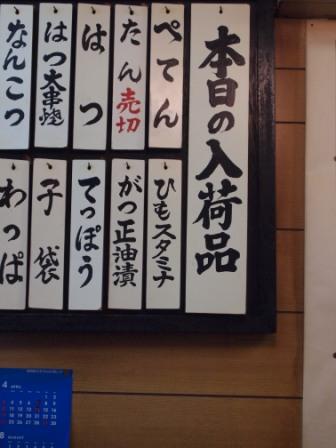 本日の入荷品
ぺてん
たん 売切
はつ
はつ大串焼
なんこつ
ひもスタミナ
がつ正油漬
てっぽう
子袋
わっぱ
4 APRIL